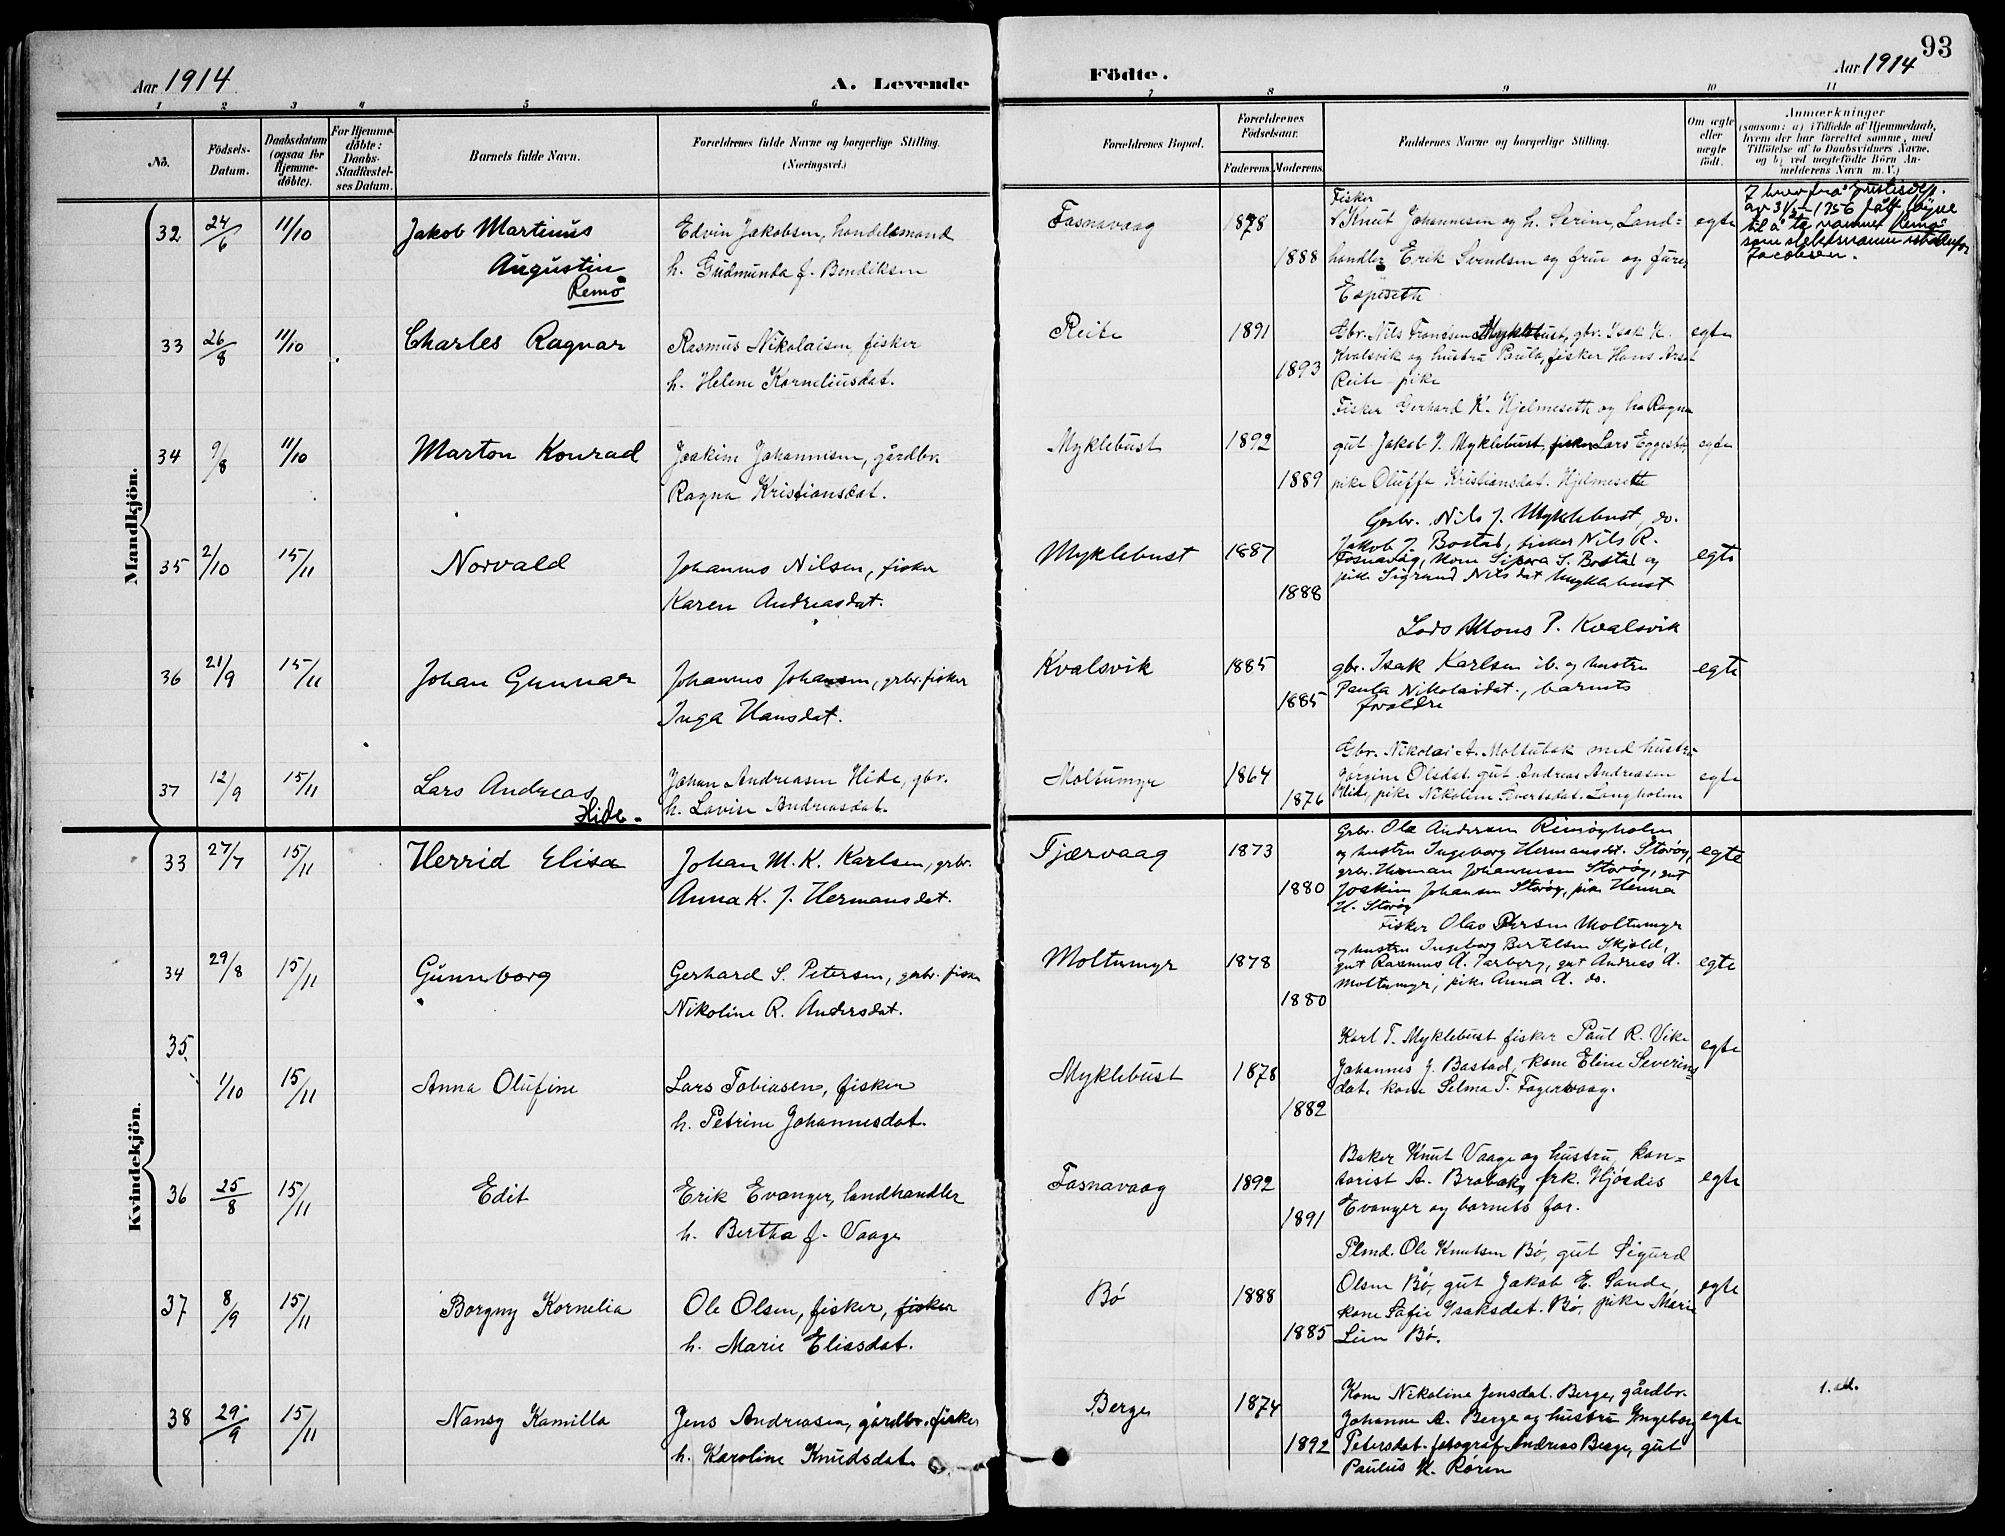 Aar 1914
A. Levende
Födte.
93
Aar 1914
1 2 3 4 5 6 7 8 9 10 11
Nô.
Födsels-
Datum.
Daabsdatum
(ogsaa for
Hjemme-
døbte).
For Hjemme-
döbte:
Daabs-
Stadfæstel-
ses Datum.
Barnets fulde Navn.
Forældrenes fulde Navne og borgerlige Stilling.
(Næringsvei.)
Forældrenes Bopæl.
Forældrenes
Födselsaar.
Faderens. Moderens.
Faddernes Navne og borgerlige Stilling.
Om ægte
eller
uægte
födt.
Anmærkninger
(saasom: a) i Tilfælde af Hjemmedaab,
hvem der har forrettet samme, med
Tilföielse af to Daabsvidners Navne,
og b) ved uegtefödte Börn An-
melderens Navn m. V.)
Mandkjön.
32 24/6 11/10 Jakob Martinus
Augustin
Remö
Edvin Jakobsen, handelsmand
h. Gudmunda f. Bendiksen
Fosnavaag 1878
1888
Fisker
Knut Johannesen og h. Serine, Land-
handler Erik Svendsen og frue og
Espeseth
egte
fra Justisdep.
av 31/5-1956 fått løyve
til å ta namnet Remö
som slektsnamn istedenfor
Jacobsen.
33 26/8 11/10 Charles Ragnar
Rasmus Nikolaisen, fisker
h. Helene Korneliusdat.
Reite 1891
1893
Gbr. Nils Myklebust, gbr. Isak K.
Kvalsvik og hustru Paula, fisker Hans
Reite pike
egte
34 9/8 11/10 Marton Konrad
Joakim Johannesen, gårdbr.
Ragna Kristiansdat.
Myklebust 1892
1889
Fisker Gerhard K. Hjelmeseth og Ragna
gut Jakob J. Myklebust, fisker Lars Eggesbö
pike Oluffa Kristiansdat. Hjelmeseth
egte
35 2/10 15/11 Norvald
Johannes Nilsen, fisker
Karen Andreasdat.
Myklebust 1887
1888
Grbr. Nils J. Myklebust, do.
Jakob J. Bostad, fisker Nils R.
Fosnavåg, kone S. Bostad og
pike Nilsdat Myklebust
egte
36 21/9 15/11 Johan Gunnar
Johannes Johansen, grbr. fisker
Inga Hansdat.
Kvalsvik 1885
1885
Lods Mons P. Kvalsvik
gbr. Isak Karlsen ib. og hustru
Paula Nikolaidat., barnets
forældre
egte
37 12/9 15/11 Lars Andreas
Hide.
Johan Andreasen Hide, gbr.
h. Lovise Andreasdat.
Moltumyr 1864
1876
Gbr. Nikolai A. Moltubak med hustru
Jørgine Olsdat. gut Andreas Andreasen
Hide, pike Nikoline Sivertsdat. Langholm
egte
Kvindekjön.
33 27/7 15/11 Herrid Elisa
Johan M. K. Karlsen, grbr.
Anna K. J. Hermansdat.
Tjærvaag 1873
1880
Grbr. Ole Andersen Remöyholm
og hustru Ingeborg Hermansdat. Storøy,
grbr. Herman Johannesen Storøy, gut
Joakim Johansen Storøy, pike Henna
H. Storøy
egte
34 29/8 15/11 Gunneborg
Gerhard S. Petersen, grbr. fisker
Nikoline R. Andersdat.
Moltumyr 1878
1880
Fisker Olav Persen Moltumyr
og hustru Ingeborg Bertelsen Skjold,
gut Rasmus A. Tarberg, gut Andreas A.
Moltumyr, pike Anna A. do.
egte
35 1/10 15/11 Anna Olufine
Lars Tobiasen, fisker
h. Petrine Johannesdat.
Myklebust 1878
1882
Karl T. Myklebust fisker Paul R. Vike
Johannes J. Bostad, kone Eline Severins-
dat. kone Selma T. Fagervaag.
egte
36 25/8 15/11 Edit
Erik Evanger, landhandler
h. Bertha f. Vaage
Fosnavaag 1892
1891
Baker Knut Vaage og hustru, kon-
torist A. frk. Hjørdis
Evanger og barnets far.
egte
37 8/9 15/11 Borgny Kornelia
Ole Olsen, fisker, fisker
h. Marie Eliasdat.
Bö 1888
1885
Plmd. Ole Knutsen Bö, gut Sigurd
Olsen Bö, gut Jakob E. Sande,
kone Sofie Isaksdat. Bö, pike Marie
Bö.
egte
38 29/9 15/11 Nansy Kamilla
Jens Andreasen, gårdbr. fisker
h. Karoline Knudsdat.
Berge 1874
1892
Kone Nikoline Jensdat. Berge, gårdbr.
Johannes A. Berge og hustru Ingeborg
Petersdat. fotograf Andreas Berge, gut
Paulus K. Rören
egte